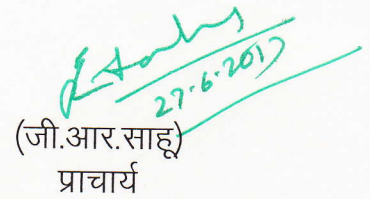 27.6.2017
(जी.आर.साहू)
प्राचार्य